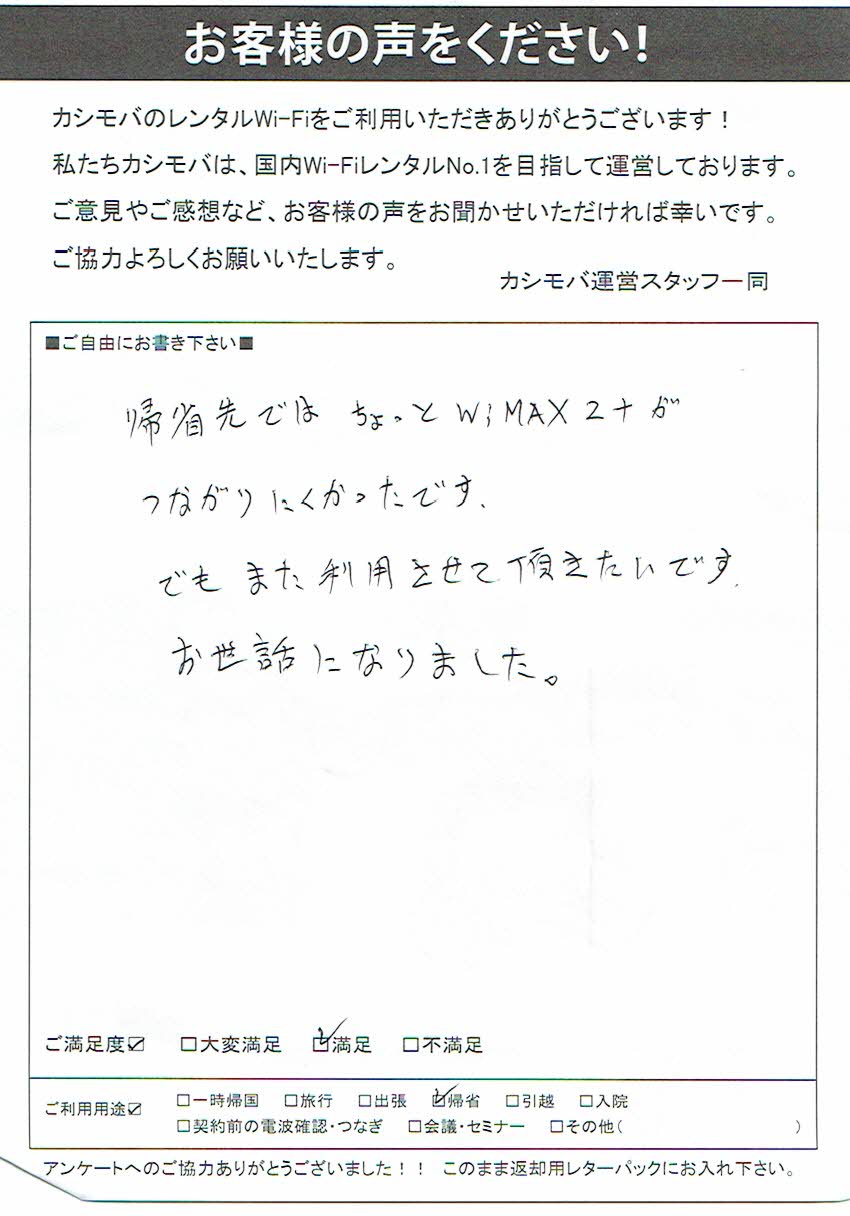 お客様の声をください！
カシモバのレンタルWi-Fiをご利用いただきありがとうございます！
私たちカシモバは、国内Wi-FiレンタルNo.1を目指して運営しております。
ご意見やご感想など、お客様の声をお聞かせいただければ幸いです。
ご協力よろしくお願いいたします。
カシモバ運営スタッフ一同
■ご自由にお書き下さい■
帰省先では ちょっと WiMAX 2+ が
つながりにくかったです.
でも また 利用させて頂きたいです.
お世話になりました。
ご満足度☑ □大変満足 ☑満足 □不満足
ご利用用途☑ □一時帰国 □旅行 □出張 ☑帰省 □引越 □入院
□契約前の電波確認・つなぎ □会議・セミナー □その他( )
アンケートへのご協力ありがとうございました！！ このまま返却用レターパックにお入れ下さい。